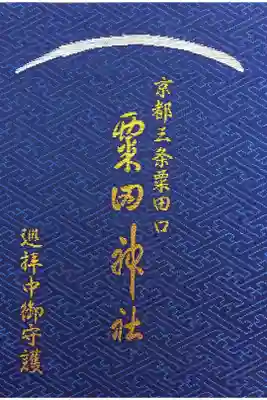 京都三条粟田口
粟田神社
巡拝中御守護